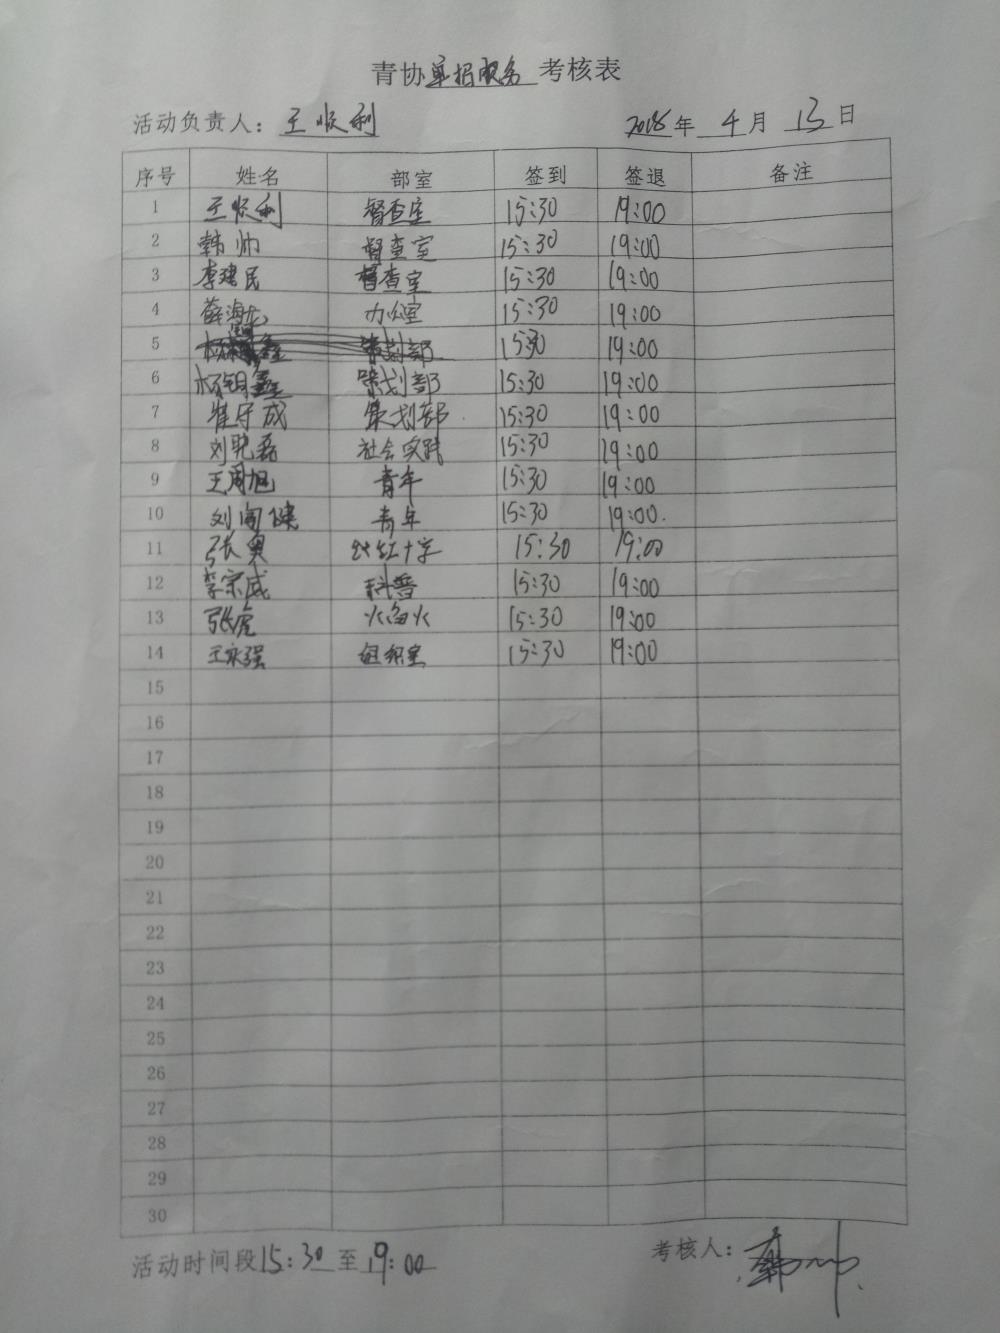 青协单招服务考核表
活动负责人：王顺利 2018年 4月 13日
序号 姓名 部室 签到 签退 备注
1 王顺利 督查室 15:30 19:00
2 韩帅 督查室 15:30 19:00
3 李建民 督查室 15:30 19:00
4 薛海龙 办公室 15:30 19:00
5 策划部 15:30 19:00
6 杨钥鑫 策划部 15:30 19:00
7 崔守成 策划部 15:30 19:00
8 刘晓磊 社会实践 15:30 19:00
9 王周旭 青年 15:30 19:00
10 刘闯健 青年 15:30 19:00
11 张奥 红十字 15:30 19:00
12 李宗威 科普 15:30 19:00
13 张虎 15:30 19:00
14 王永强 组织室 15:30 19:00
15
16
17
18
19
20
21
22
23
24
25
26
27
28
29
30
活动时间段15:30至19:00 考核人：韩帅